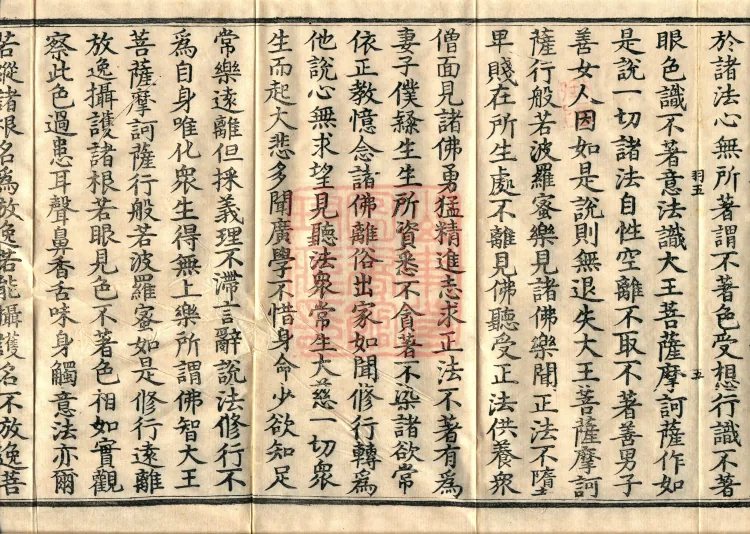 於諸法心無所著謂不著色受想行識不著
羽五
五
眼色識不著意法識大王菩薩摩訶薩作如
是說一切諸法自性空離不取不著善男子
善女人因如是說則無退失大王菩薩摩訶
薩行般若波羅蜜樂見諸佛樂聞正法不墮
卑賤在所生處不離見佛聽受正法供養衆
僧面見諸佛勇猛精進志求正法不著有爲
妻子僕𨽻生生所資悉不貪著不染諸欲常
依正教憶念諸佛離俗出家如聞修行轉爲
他說心無求望見聽法衆常生大慈一切衆
生而起大悲多聞廣學不惜身命少欲知足
常樂遠離但採義理不滯言辭說法修行不
爲自身唯化衆生得無上樂所謂佛智大王
菩薩摩訶薩行般若波羅蜜如是修行遠離
放逸攝護諸根若眼見色不著色相如實觀
察此色過患耳聲鼻香舌味身觸意法亦爾
若縱諸根名爲放逸若能攝護名不放逸菩